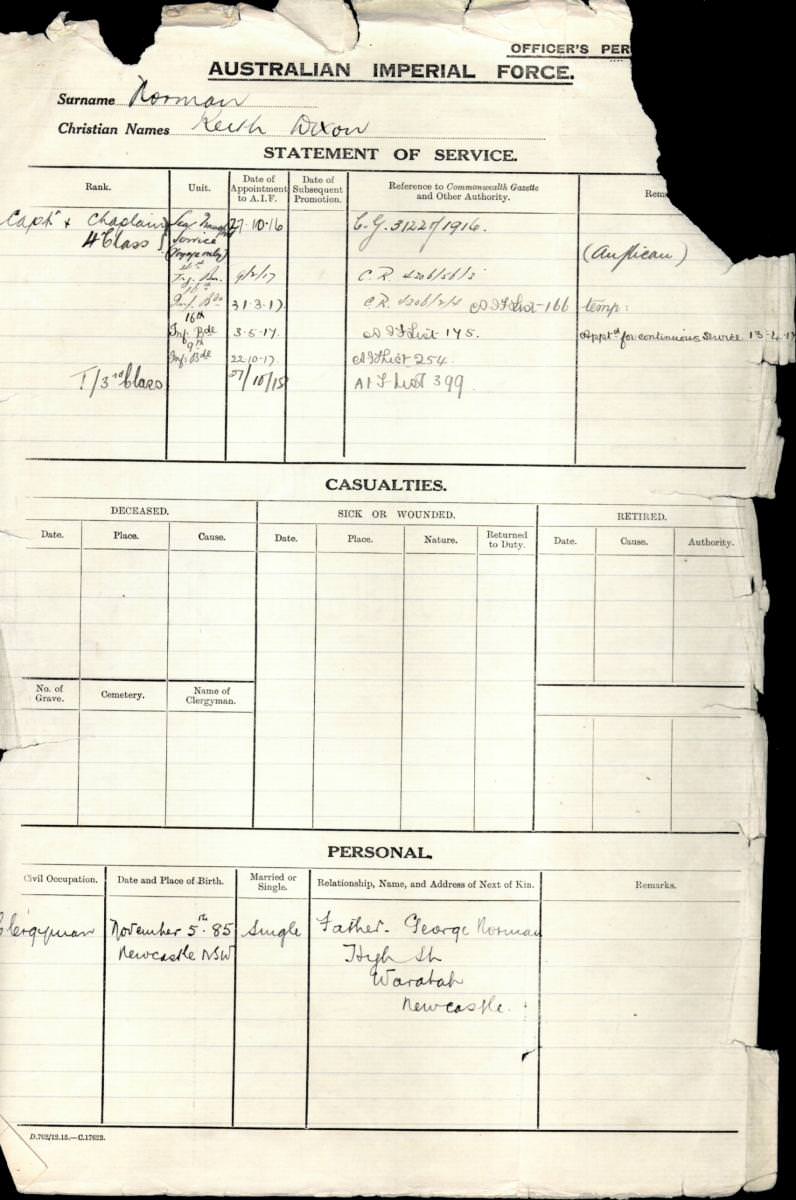 OFFICER'S PER
AUSTRALIAN IMPERIAL FORCE.
Surname Norman
Christian Names Keith Dixon
STATEMENT OF SERVICE.
Rank. Unit. Date of Appointment to A.I.F. Date of Subsequent Promotion. Reference to Commonwealth Gazette and Other Authority. Rem
Capt & Chaplain Sea Transport 27.10.16 C.G. 3122/1916.
4th Class Service
(Temporarily) (Anglican)
4th
Trg. Bn. 9/2/17 C.R.
16th
Inf. Bde 31.3.17 C.R. AIF List 166 temp:
16th
Inf. Bde 3.5.17. AIF List 175. Apptd for continuous service 13-4-17
9th
Inf. Bde 22.10.17 AIF List 254.
T/3rd Class 27/10/18 AIF List 399
CASUALTIES.
DECEASED. SICK OR WOUNDED. RETIRED.
Date. Place. Cause. Date. Place. Nature. Returned to Duty. Date. Cause. Authority.
No. of Grave. Cemetery. Name of Clergyman.
PERSONAL.
Civil Occupation. Date and Place of Birth. Married or Single. Relationship, Name, and Address of Next of Kin. Remarks.
Clergyman November 5th. 85 Single Father. George Norman
Newcastle NSW High St
Waratah
Newcastle.
D.762/12.15.—C.17622.